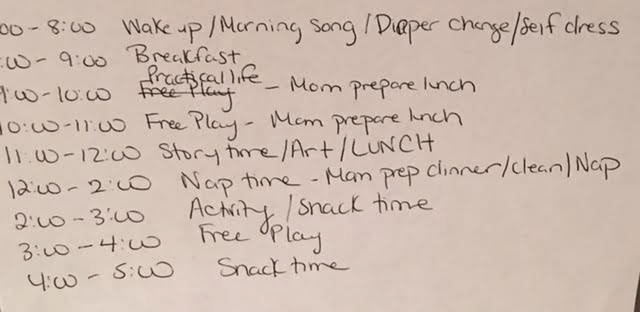 00 - 8:00 Wake up / Morning song / Diaper change / self dress
:00 - 9:00 Breakfast
Practical life
9:00 - 10:00 Free Play - Mom prepare lunch
10:00 - 11:00 Free Play - Mom prepare lunch
11:00 - 12:00 Story time / Art / LUNCH
12:00 - 2:00 Nap time - Mom prep dinner / clean / Nap
2:00 - 3:00 Activity / Snack time
3:00 - 4:00 Free Play
4:00 - 5:00 Snack time